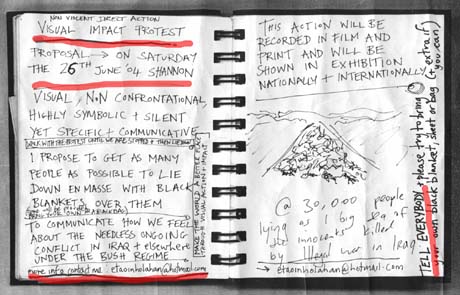 NON VIOLENT DIRECT ACTION
VISUAL IMPACT PROTEST
PROPOSAL → ON SATURDAY
THE 26TH JUNE '04 SHANNON
VISUAL, NON CONFRONTATIONAL,
HIGHLY SYMBOLIC + SILENT
YET SPECIFIC + COMMUNICATIVE
WALK WITH THE PROTEST UNTIL WE ARE STOPPED + THEN LIE DOWN
I PROPOSE TO GET AS MANY
PEOPLE AS POSSIBLE TO LIE
DOWN EN MASSE WITH BLACK
BLANKETS OVER THEM
TO COMMUNICATE HOW WE FEEL
ABOUT THE NEEDLESS ONGOING
CONFLICT IN IRAQ + elsewhere
UNDER THE BUSH REGIME
more info contact me etaoinholahan@hotmail.com
THROUGH VISUAL ACTION + IMPACT
THIS ACTION WILL BE
RECORDED IN FILM AND
PRINT AND WILL BE
SHOWN IN EXHIBITION
NATIONALLY + INTERNATIONALLY
@ 30,000 people
lying as 1 big sea of
innocents killed
by illegal war in Iraq
→ etaoinholahan@hotmail.com
TELL EVERYBODY Please try to bring (+ extra if
your own black blanket, sheet or bag you can)